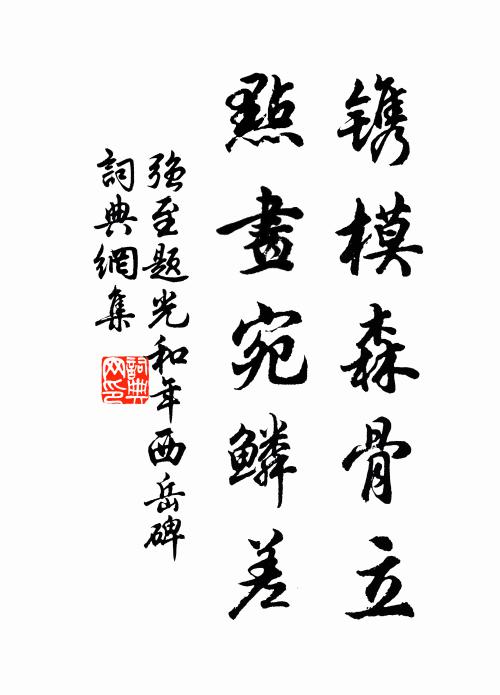 镌模森骨立
點畫宛鱗差
強至題光和年西岳碑
詞典網集
詞典網印